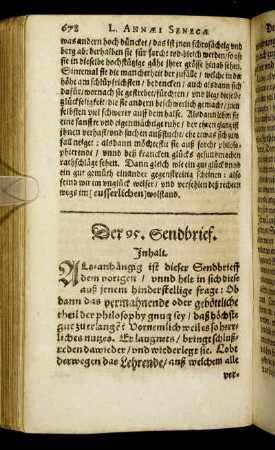 678 L. ANNÆI SENECÆ
was andern hoch düncket / das ist jnen schrosächtig vnd
berg ab: derhalben sie für forcht tod-bleich werden / so offt
sie in dieselbe hochstützige gähe jhrer grösse hinab sehen.
Sintemal sie die mancherleit der zufälle / welche in der
höhe am schlüpfrichsten / bedencken / auch als dann sich
da für / wornach sie gestrebet / fürchten / vnd liegt dieselb
glückseligkeit: die sie andern beschwerlich gemacht / jnen
selbsten viel schwerer auff dem halse. Als dann loben sie
eine sanffte vnd eigenmächtige ruhe /
jhnen verhast / vnd suchen außflucht /
fall neiget: als dann möchtestu sie auß forcht philoso-
phierend / vnnd deß francken glücks gesunde
rathschläge sehen. Dann gleich wie ein gut glück vnd
ein gut gemüth einander gegenstreitig scheinen: also
seind wir im vnglück weiser / vnd verhelen deß rechten
wegs im [eusserlichen] wolstand.
Der 95. Sendbrief.
Inhalt.
ALs-anhängig ist dieser Sendbrieff
dem vorigen / vnnd helt in sich diese
auß jenem hinderstellige frage: Ob
dann das vermahnende oder geböttliche
theil der philosophy gnug sey / daß höchste
gut zu erlangẽ: Vornemlich weil es so herr-
liches nutzes. Er laugnets / bringt schluß-
reden dawieder / vnd wiederlegt sie. Lobt
derwegen das Lehrende / auß welchem alle
ver-